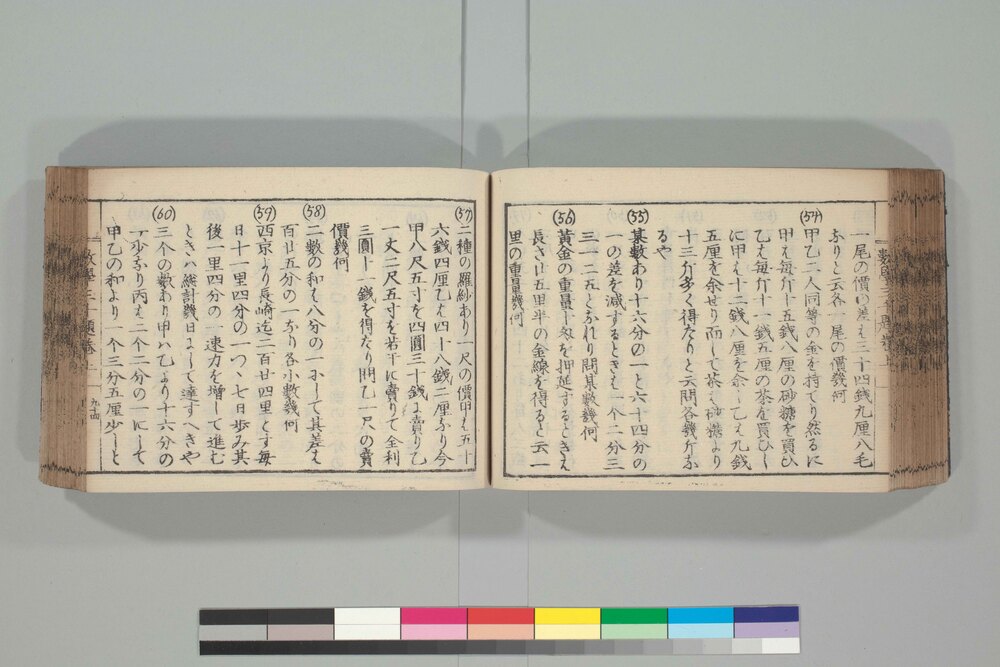 一尾の價の差は三十四錢九厘八毛
なりと云各一尾の價幾何
(54)
甲乙二人同等の金を持てり然るに
甲は每斤十五錢八厘の砂糖を買ひ
乙は每斤十一錢五厘の茶を買ひし
に甲は十二錢八厘を余し乙は九錢
五厘を余せり而して茶は砂糖より
十三斤多く得たりと云問各幾斤な
るや
(55)
某數あり十六分の一と六十四分の
一の差を減するときは一个二分三
三一二五となれり問某數幾何
(56)
黃金の重量十匁を押延するときは
長さ廿五里半の金線を得ると云一
里の重量幾何
(57)
二種の羅紗あり一尺の價甲は五十
六錢四厘乙は四十八錢二厘なり今
甲八尺五寸を四圓三十錢に賣り乙
一丈二尺五寸を若干に賣りて全利
三圓十一錢を得たり問乙一尺の賣
價幾何
(58)
二數の和は八分の一にして其差は
百廿五分の一なり各小數幾何
(59)
西京より長崎迄二百廿四里とす每
日十一里四分の一つゝ七日歩み其
後一里四分の一速力を增して進む
ときハ總計幾日にして達すへきや
(60)
三个の數あり甲ハ乙より十六分の
一少なり丙は二个二分の一にして
甲乙の和より一个三分五厘少しと
九十四